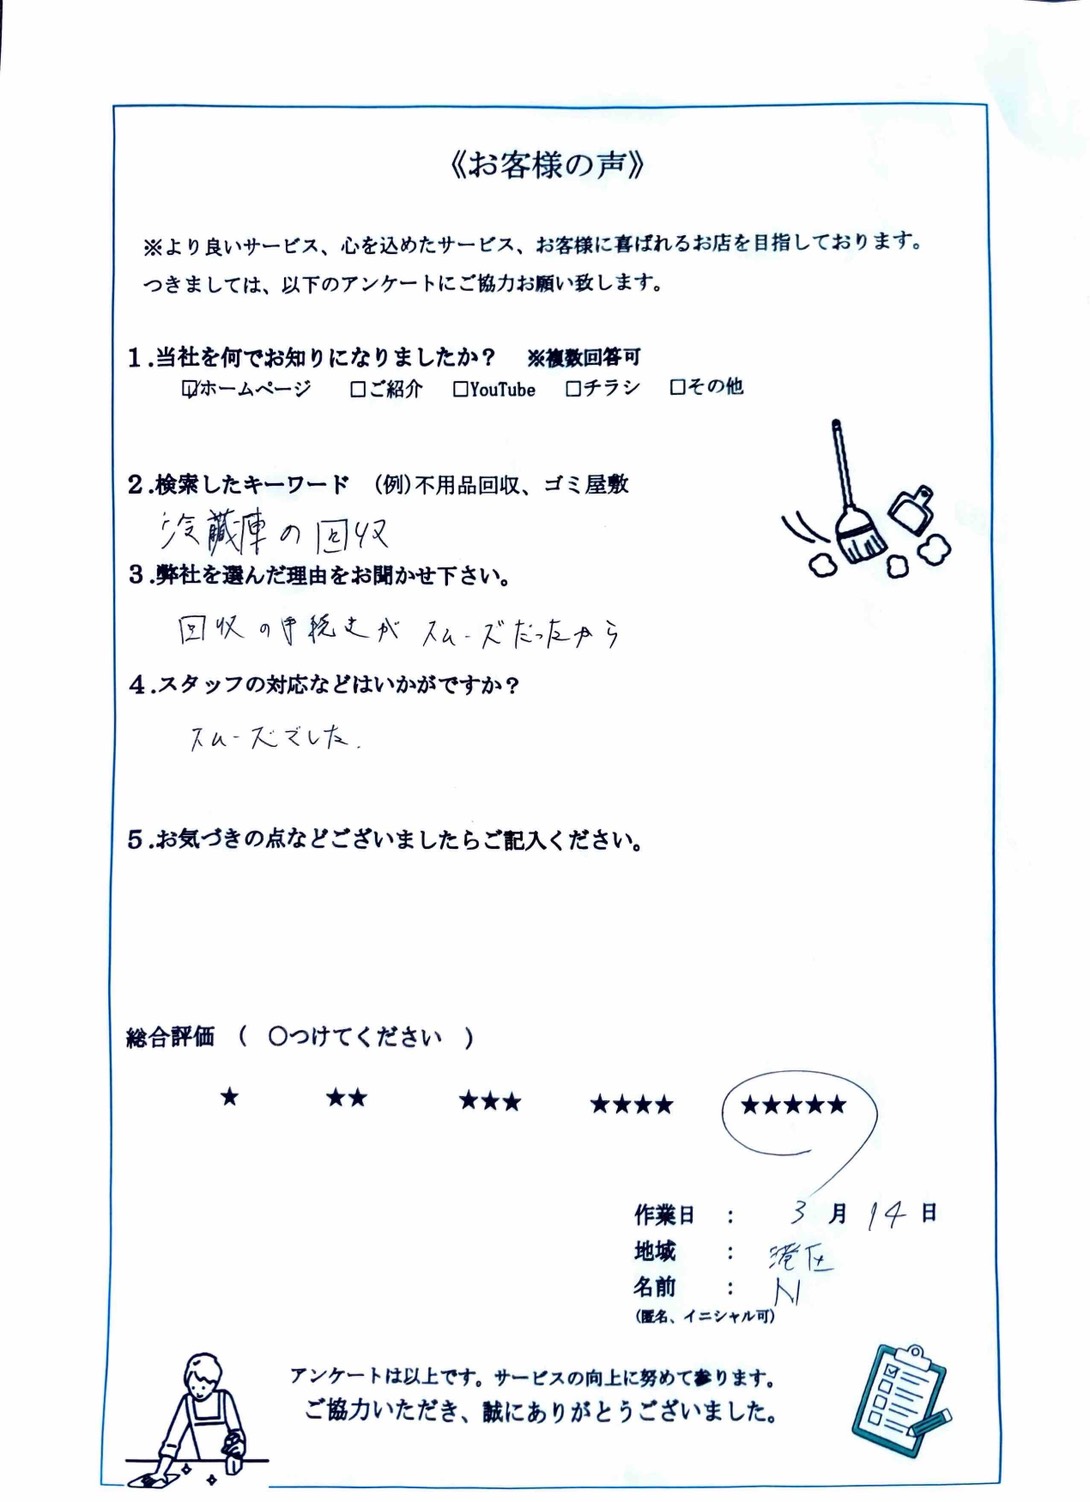 《お客様の声》
※より良いサービス、心を込めたサービス、お客様に喜ばれるお店を目指しております。
つきましては、以下のアンケートにご協力お願い致します。
1.当社を何でお知りになりましたか？　※複数回答可
☑ホームページ　□ご紹介　□YouTube　□チラシ　□その他
2.検索したキーワード　(例)不用品回収、ゴミ屋敷
冷蔵庫の回収
3.弊社を選んだ理由をお聞かせ下さい。
回収の手続きがスムーズだったから
4.スタッフの対応などはいかがですか？
スムーズでした.
5.お気づきの点などございましたらご記入ください。
総合評価　(　〇つけてください　)
★　★★　★★★　★★★★　★★★★★
作業日　：　3月14日
地域　：　港区
名前　：　N
(匿名、イニシャル可)
アンケートは以上です。サービスの向上に努めて参ります。
ご協力いただき、誠にありがとうございました。